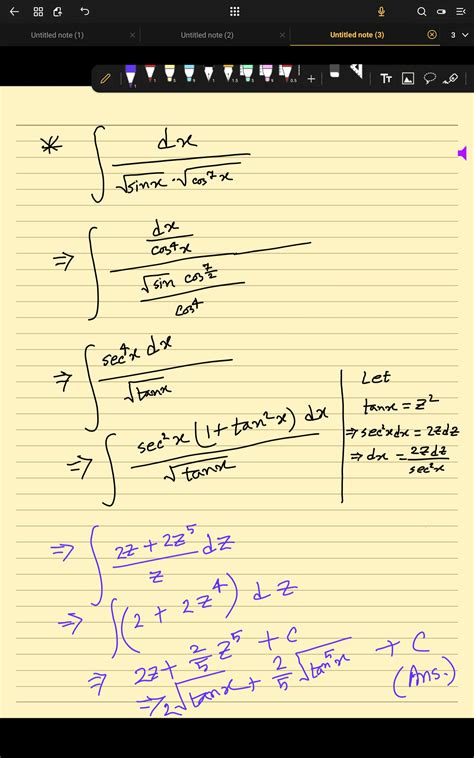 Untitled note (1) × Untitled note (2) × Untitled note (3) 3
Tt
* ∫ dx / (√sinx · √cos⁷x)
⇒ ∫ (dx / cos⁴x) / ((√sin cos^(7/2)) / cos⁴)
⇒ ∫ sec⁴x dx / √tanx
⇒ ∫ sec²x (1 + tan²x) dx / √tanx
Let
tanx = z²
⇒ sec²x dx = 2z dz
⇒ dx = 2z dz / sec²x
⇒ ∫ (2z + 2z⁵) / z dz
⇒ ∫ (2 + 2z⁴) dz
⇒ 2z + 2/5 z⁵ + C
⇒ 2√tanx + 2/5 √tan⁵x + C
(Ans.)